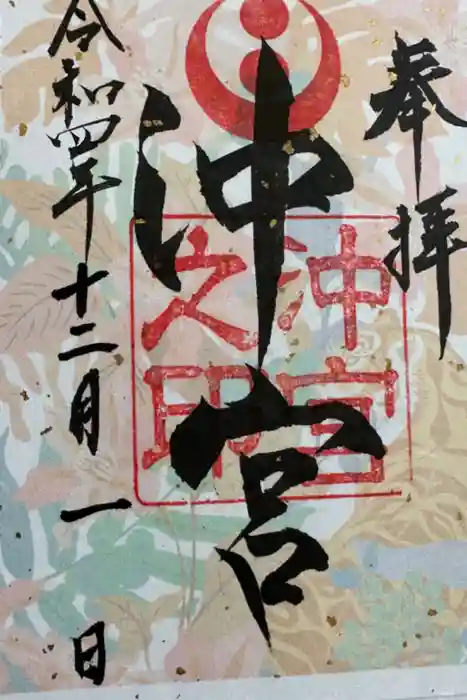 奉拝
沖宮
沖宮
之印
令和四年十二月一日